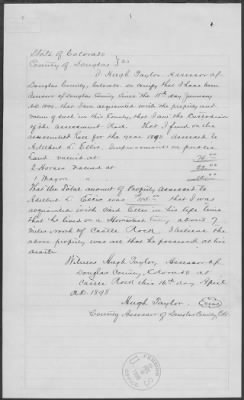 State of Colorado
County of Douglas } ss
I Hugh Taylor Assessor of
Douglas County, Colorado do certify that I have been
Assessor of Douglas County since the 10th day January
A.D. that I am acquainted with the property and
value of such in this County, that I am the Custodian
of the Assessment Roll. That I find on the
Assessment Roll for the year 1892 assessed to
Adelbert L. Ellis Improvements on public
Land valued at
2 Horses valued at
1 Wagon
That the total amount of Property assessed to
Adelbert L. Ellis was that I was
acquainted with said Ellis in his life time
that he lived on a about 7
miles North of Castle Rock I believe the
above property was all that he possessed at his
death.
Witness Hugh Taylor Assessor of
Douglas County, Colorado at
Castle Rock this 16th day April
A.D. 1898
Hugh Taylor
County Assessor of Douglas County, Colo